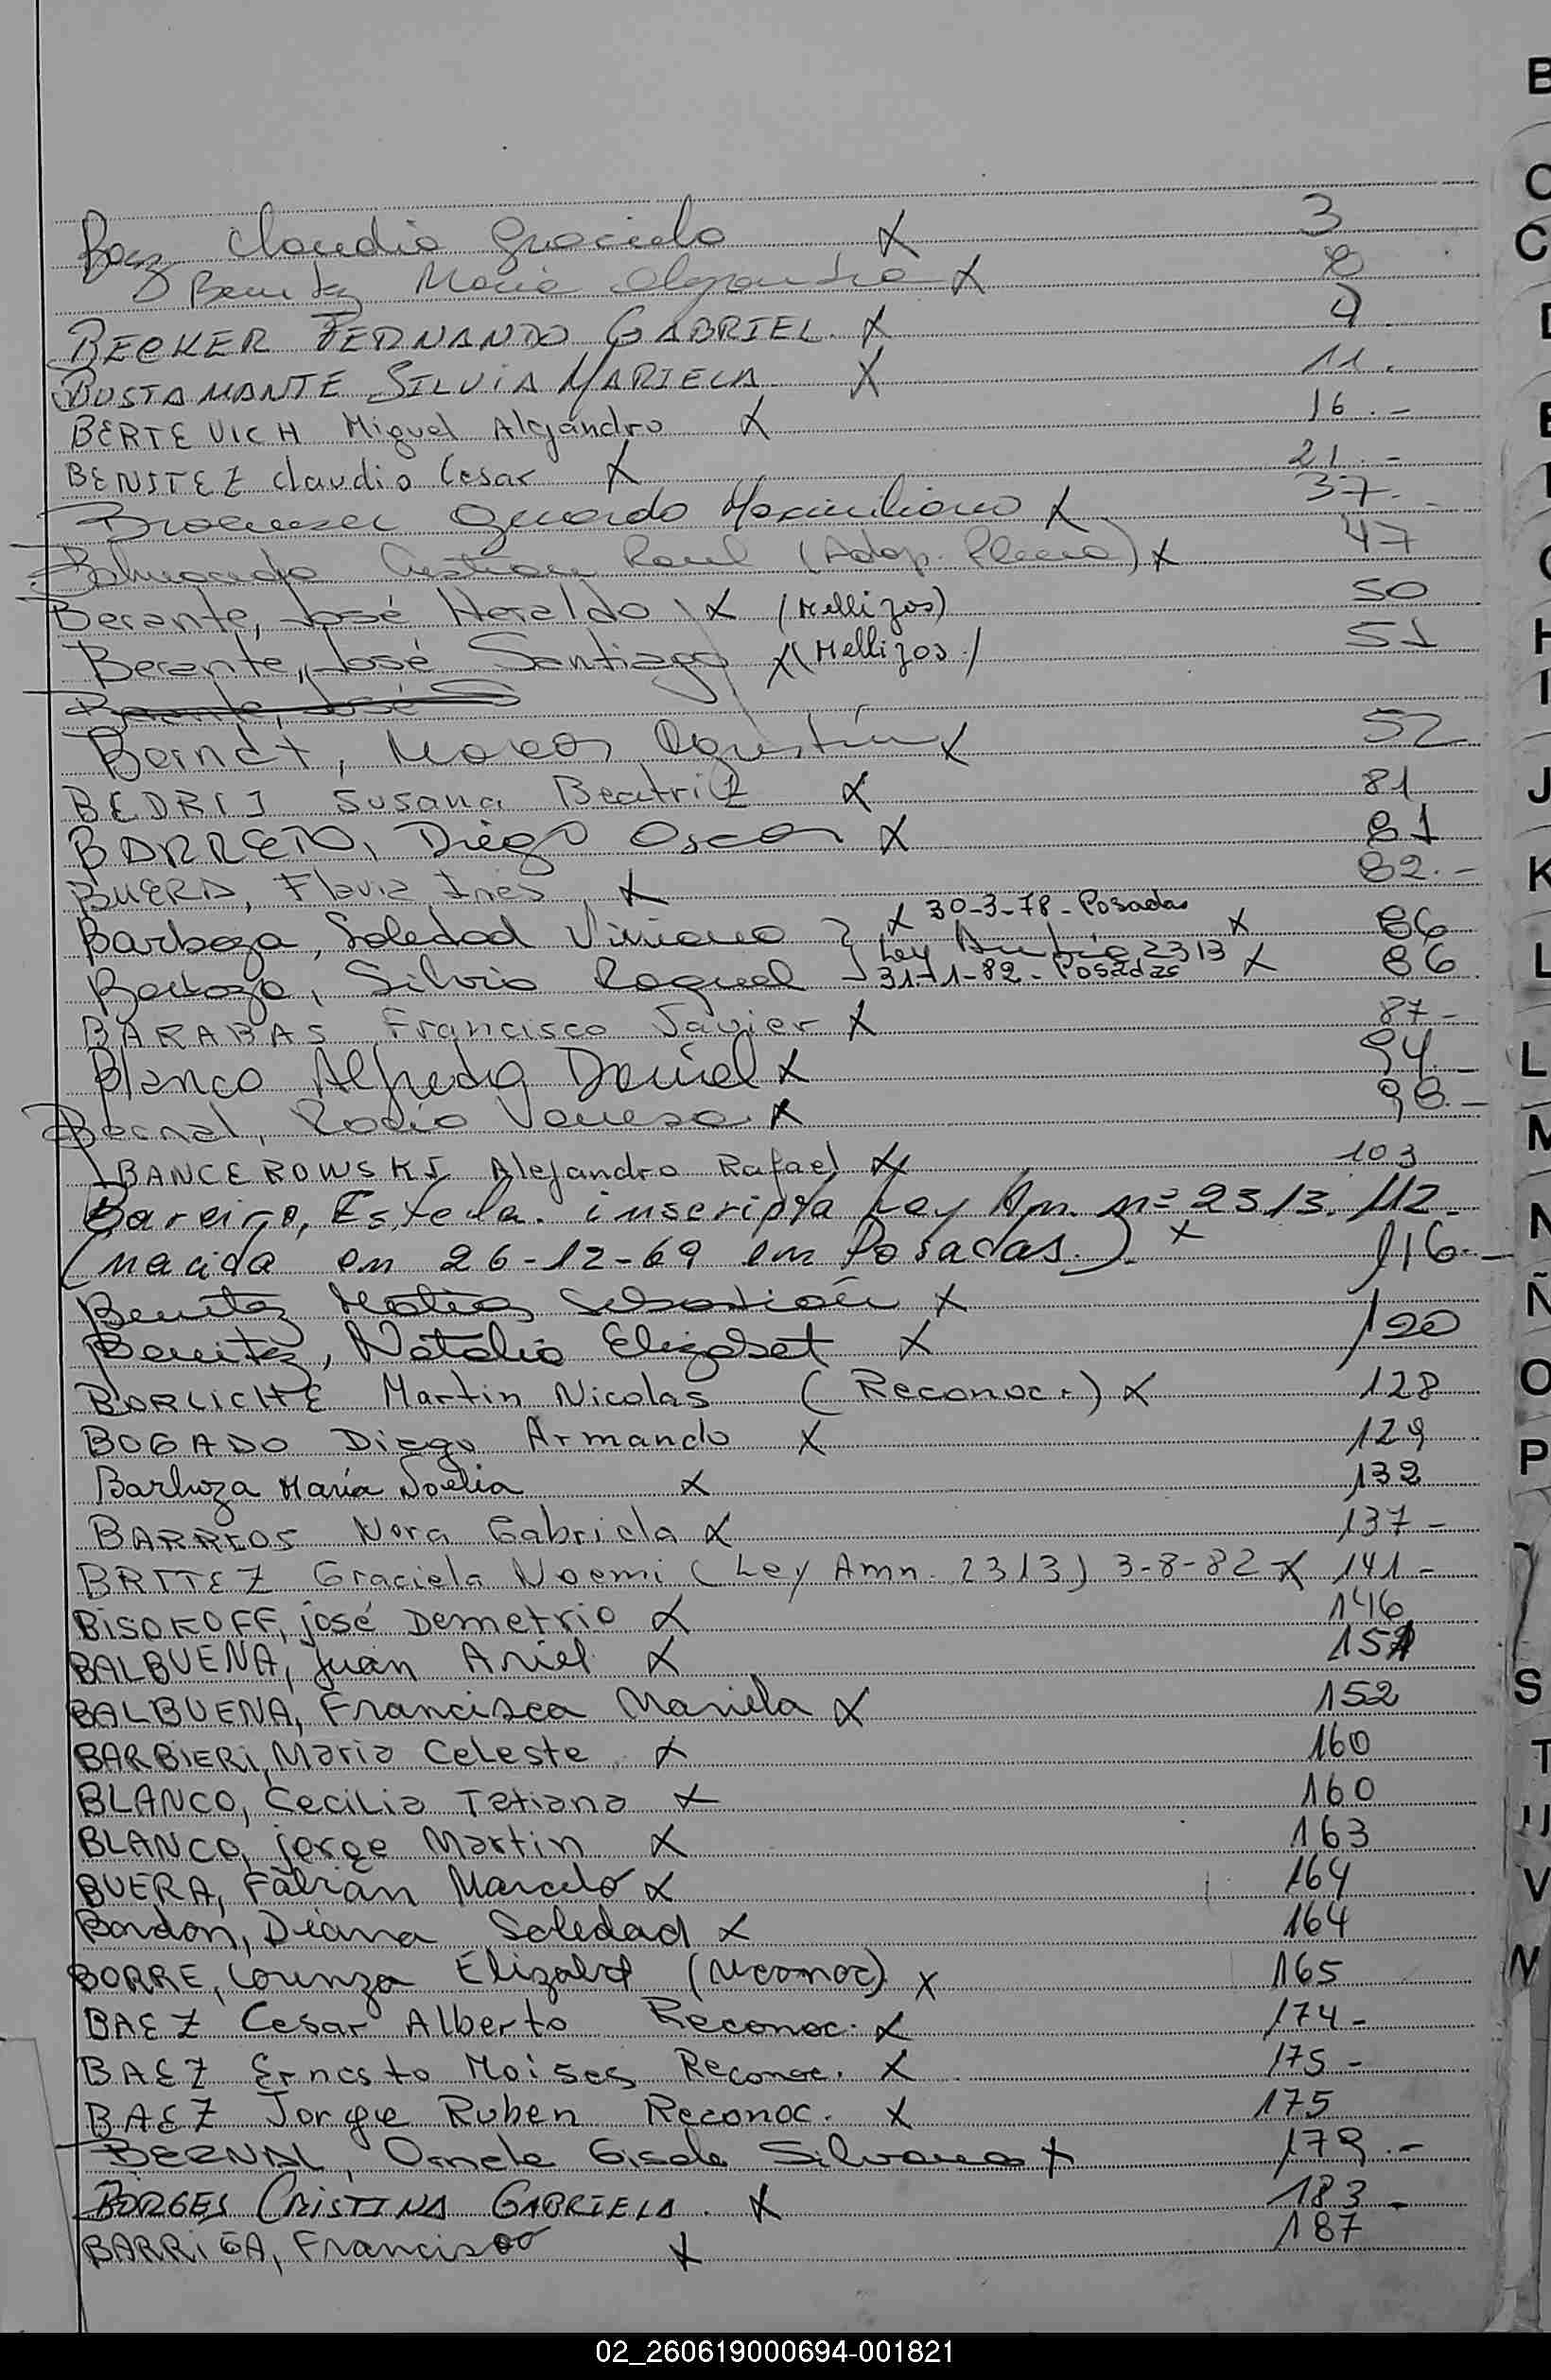 Baez Claudia Graciela X 3
Benitez Maria Alejandra X 8
BECKER FERNANDO GABRIEL. X 9.
BUSTAMANTE SILVIA MARIELA. X 11.
BERTEVICH Miguel Alejandro X 16.-
BENITEZ Claudio Cesar X 21.-
Gerardo Maximiliano X 37.-
Cristian Raul (Adop. Plena) X 47
Berante, José Heraldo X (Mellizos) 50
Berante, José Santiago X (Mellizos) 51
Berante, José S
Berndt, Marcos Agustín X 52
BEDRIJ Susana Beatriz X 81
BARRETO, Diego Oscar X 81
BUERA, Flavia Ines X 82.-
Barboza, Soledad Viviana } X 30-3-78-Posadas X 86
Ley 2313
Barboza, Silvia Raquel } 31-1-82-Posadas X 86
BARABAS Francisco Javier X 87-
Blanco Alfredo Daniel X 94.-
Bernal, Rocio Vanesa X 98.-
BANCEROWSKI Alejandro Rafael X 103
Bareiro, Estela. inscripta Ley Am. nº 2313. 112.-
(nacida en 26-12-69 en Posadas.). X 116.-
Benitez Matias Sebastián X
Benitez, Natalia Elizabet X 120
BORLICHE Martin Nicolas (Reconoc.) X 128
BOGADO Diego Armando X 129
Barboza María Noelia X 132
BARRIOS Nora Gabriela X 137-
BRITEZ Graciela Noemi (Ley Amn. 2313) 3-8-82 X 141-
BISOKOFF, José Demetrio X 146
BALBUENA, Juan Ariel X 151
BALBUENA, Francisca Mariela X 152
BARBIERI, Maria Celeste X 160
BLANCO, Cecilia Tatiana X 160
BLANCO, Jorge Martin X 163
BUERA, Fabián Marcelo X 164
Bordón, Diana Soledad X 164
BORRE, Lorenza Elizabet (reconoc) X 165
BAEZ Cesar Alberto Reconoc. X 174-
BAEZ Ernesto Moises Reconoc. X 175-
BAEZ Jorge Ruben Reconoc. X 175
BERNAL, Ornela Gisela Silvana X 179.-
BORGES CRISTINA GABRIELA. X 183-
BARRIGA, Francisco X 187
B
C
C
D
H
I
J
K
L
L
M
N
Ñ
O
P
S
T
U
V
02_260619000694-001821